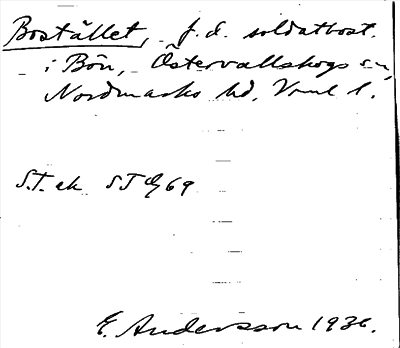 Bostället, f.d. soldatbost.
i Bön, Östervallskogs sn,
Nordmarks hd, Vrml l.
S.T. ek
E. Andersson 1936.